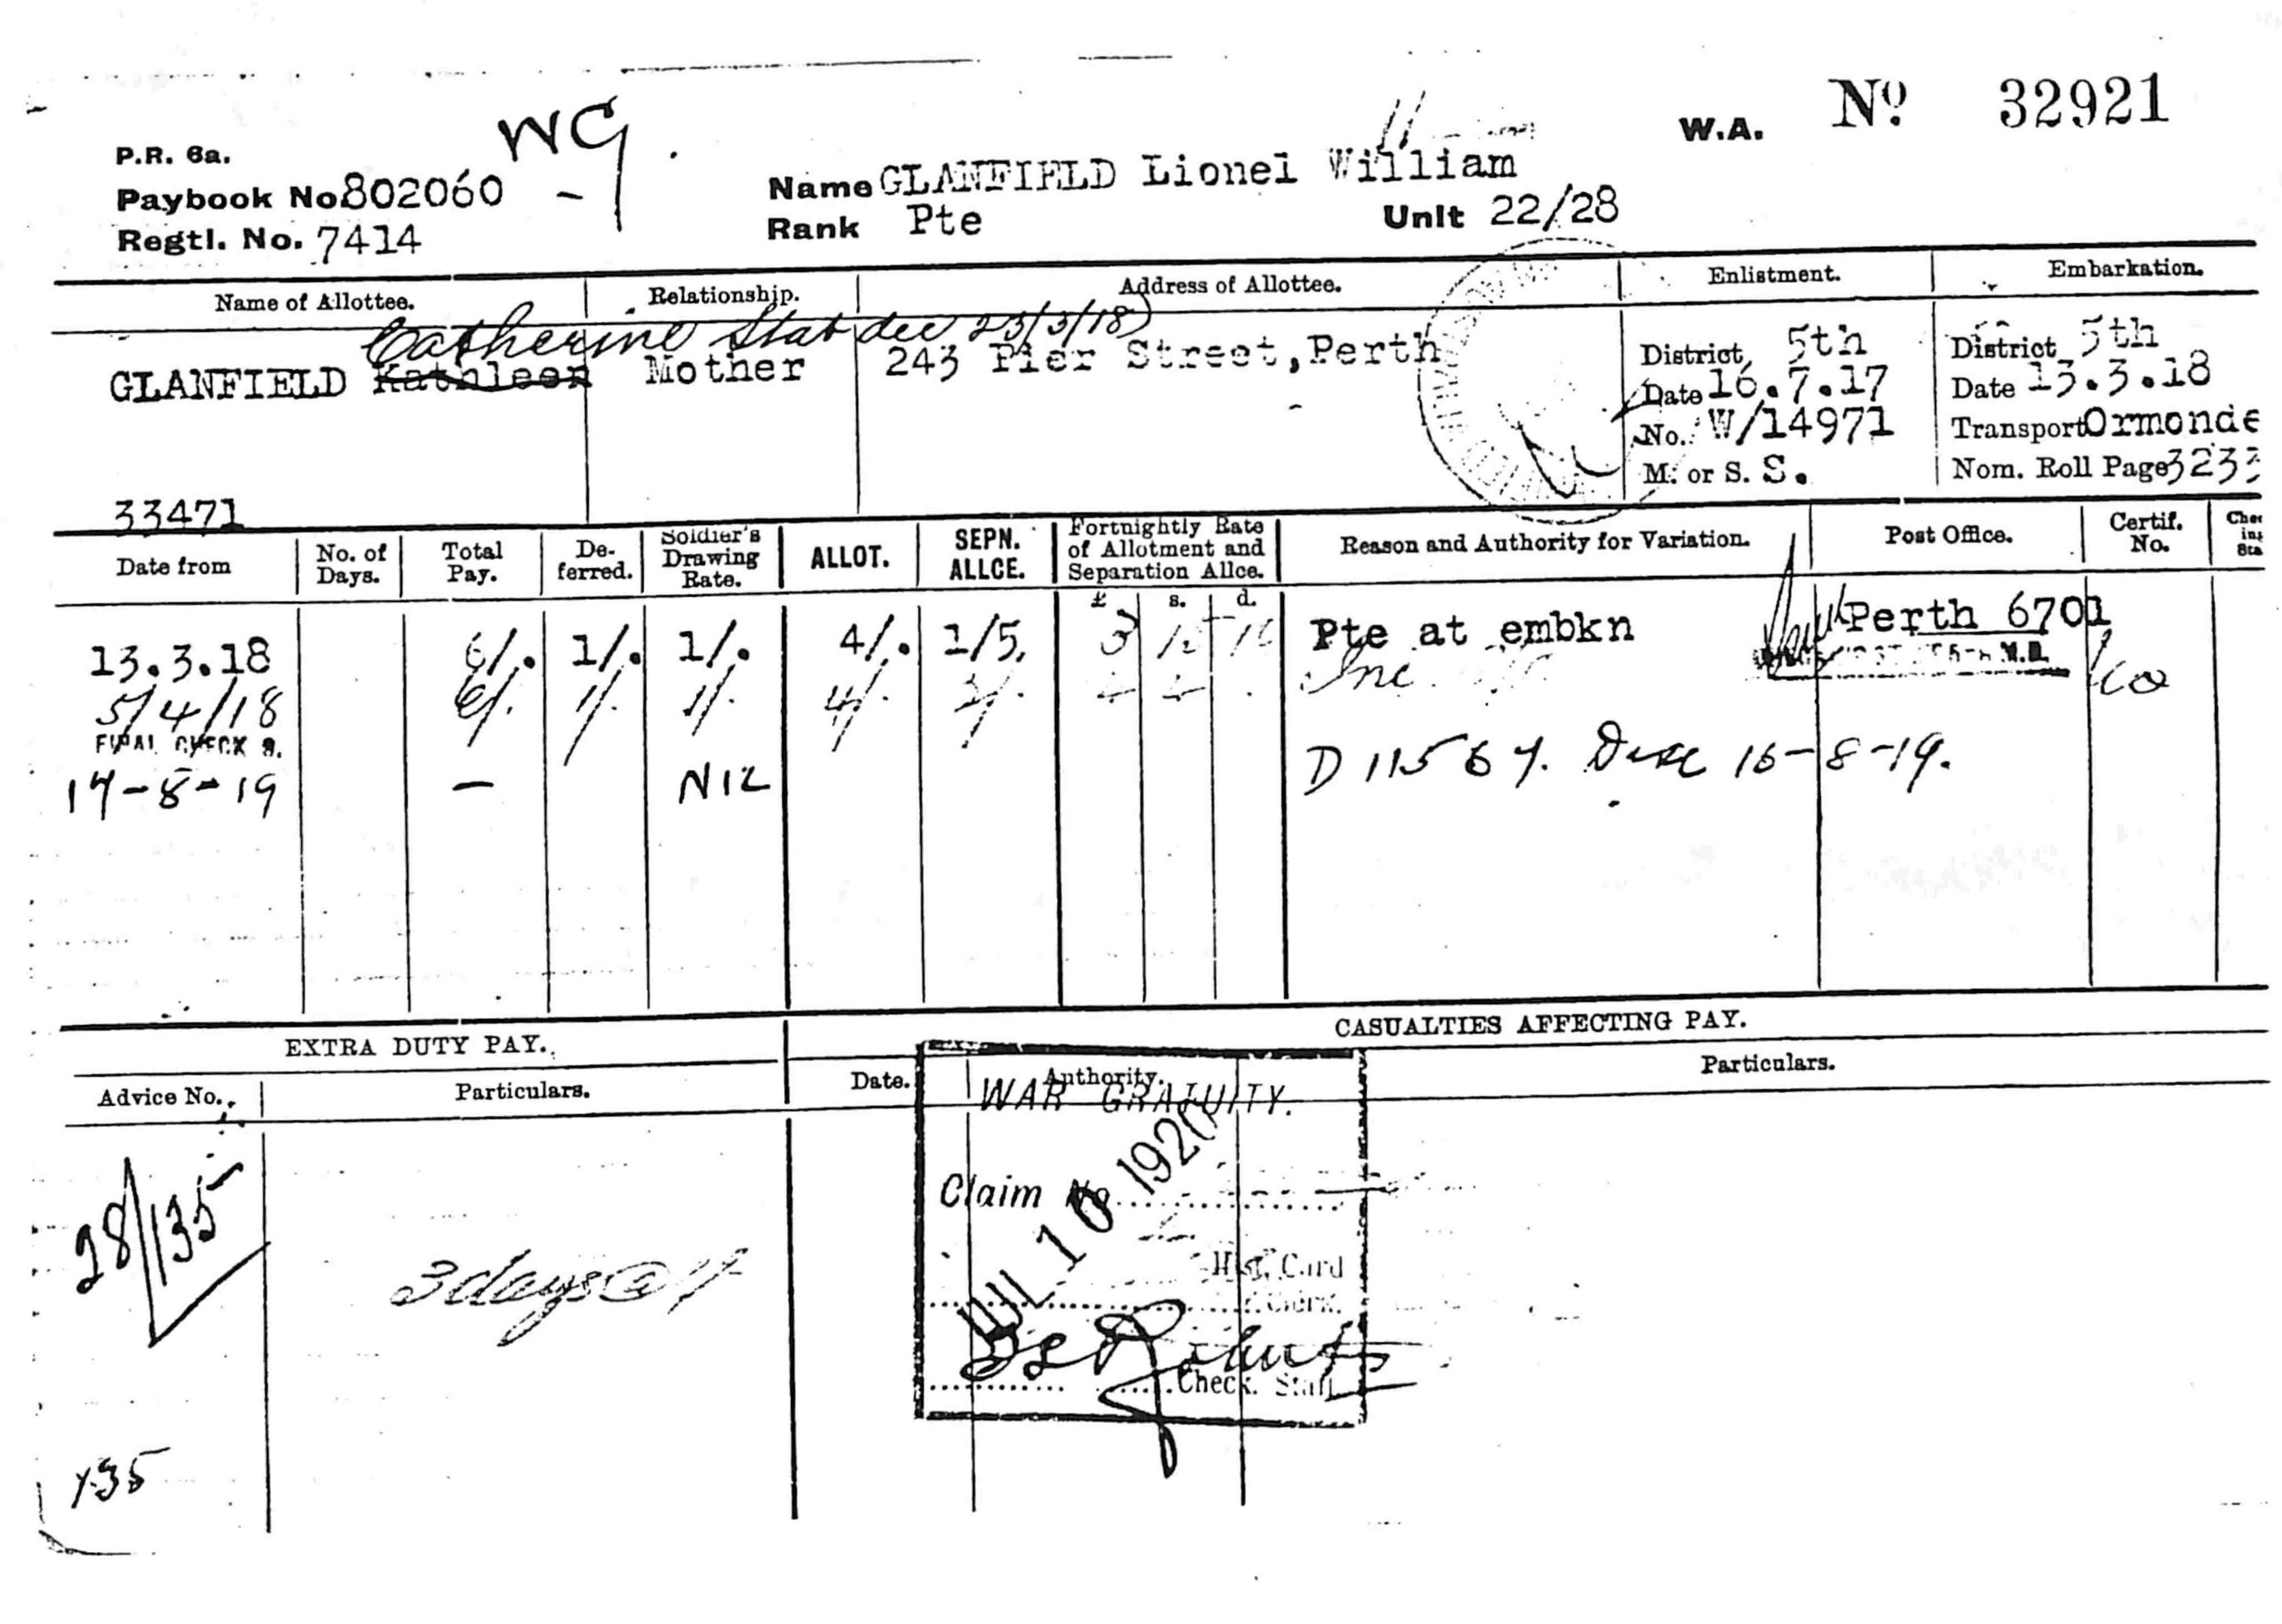 W.A. No. 32921
P.R. 6a.
WG
Paybook No 802060
Name GLANFIELD Lionel William
Regtl. No. 7414
Rank Pte
Unit 22/28
Name of Allottee.
Relationship.
Address of Allottee.
Enlistment.
Embarkation.
Catherine Stat dec 23/3/18
GLANFIELD Kathleen
Mother
243 Pier Street, Perth
District 5th
Date 16.7.17
No. W/14971
M. or S. S.
District 5th
Date 13.3.18
Transport Ormonde
Nom. Roll Page 3233
33471
Date from
No. of Days.
Total Pay.
De-ferred.
Soldier's Drawing Rate.
ALLOT.
SEPN. ALLCE.
Fortnightly Rate of Allotment and Separation Allce.
Reason and Authority for Variation.
Post Office.
Certif. No.
£ s. d.
13.3.18 6/. 1/. 1/. 4/. 1/5. Pte at embkn Perth 6701
5/4/18 6/. 1/. 1/. 4/. Inc
FINAL CHECK
17-8-19 — NIL D 11567. Disc 16-8-19.
EXTRA DUTY PAY.
CASUALTIES AFFECTING PAY.
Advice No.
Particulars.
Date.
Authority.
Particulars.
WAR GRATUITY.
28/135
Claim No
JUL 10 1920
3 days @ 1/-
Hist. Card
Clerk.
Check. Staff
135